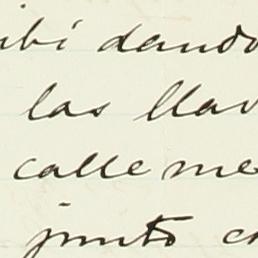 ibí dando
las llav
calle me
junto co